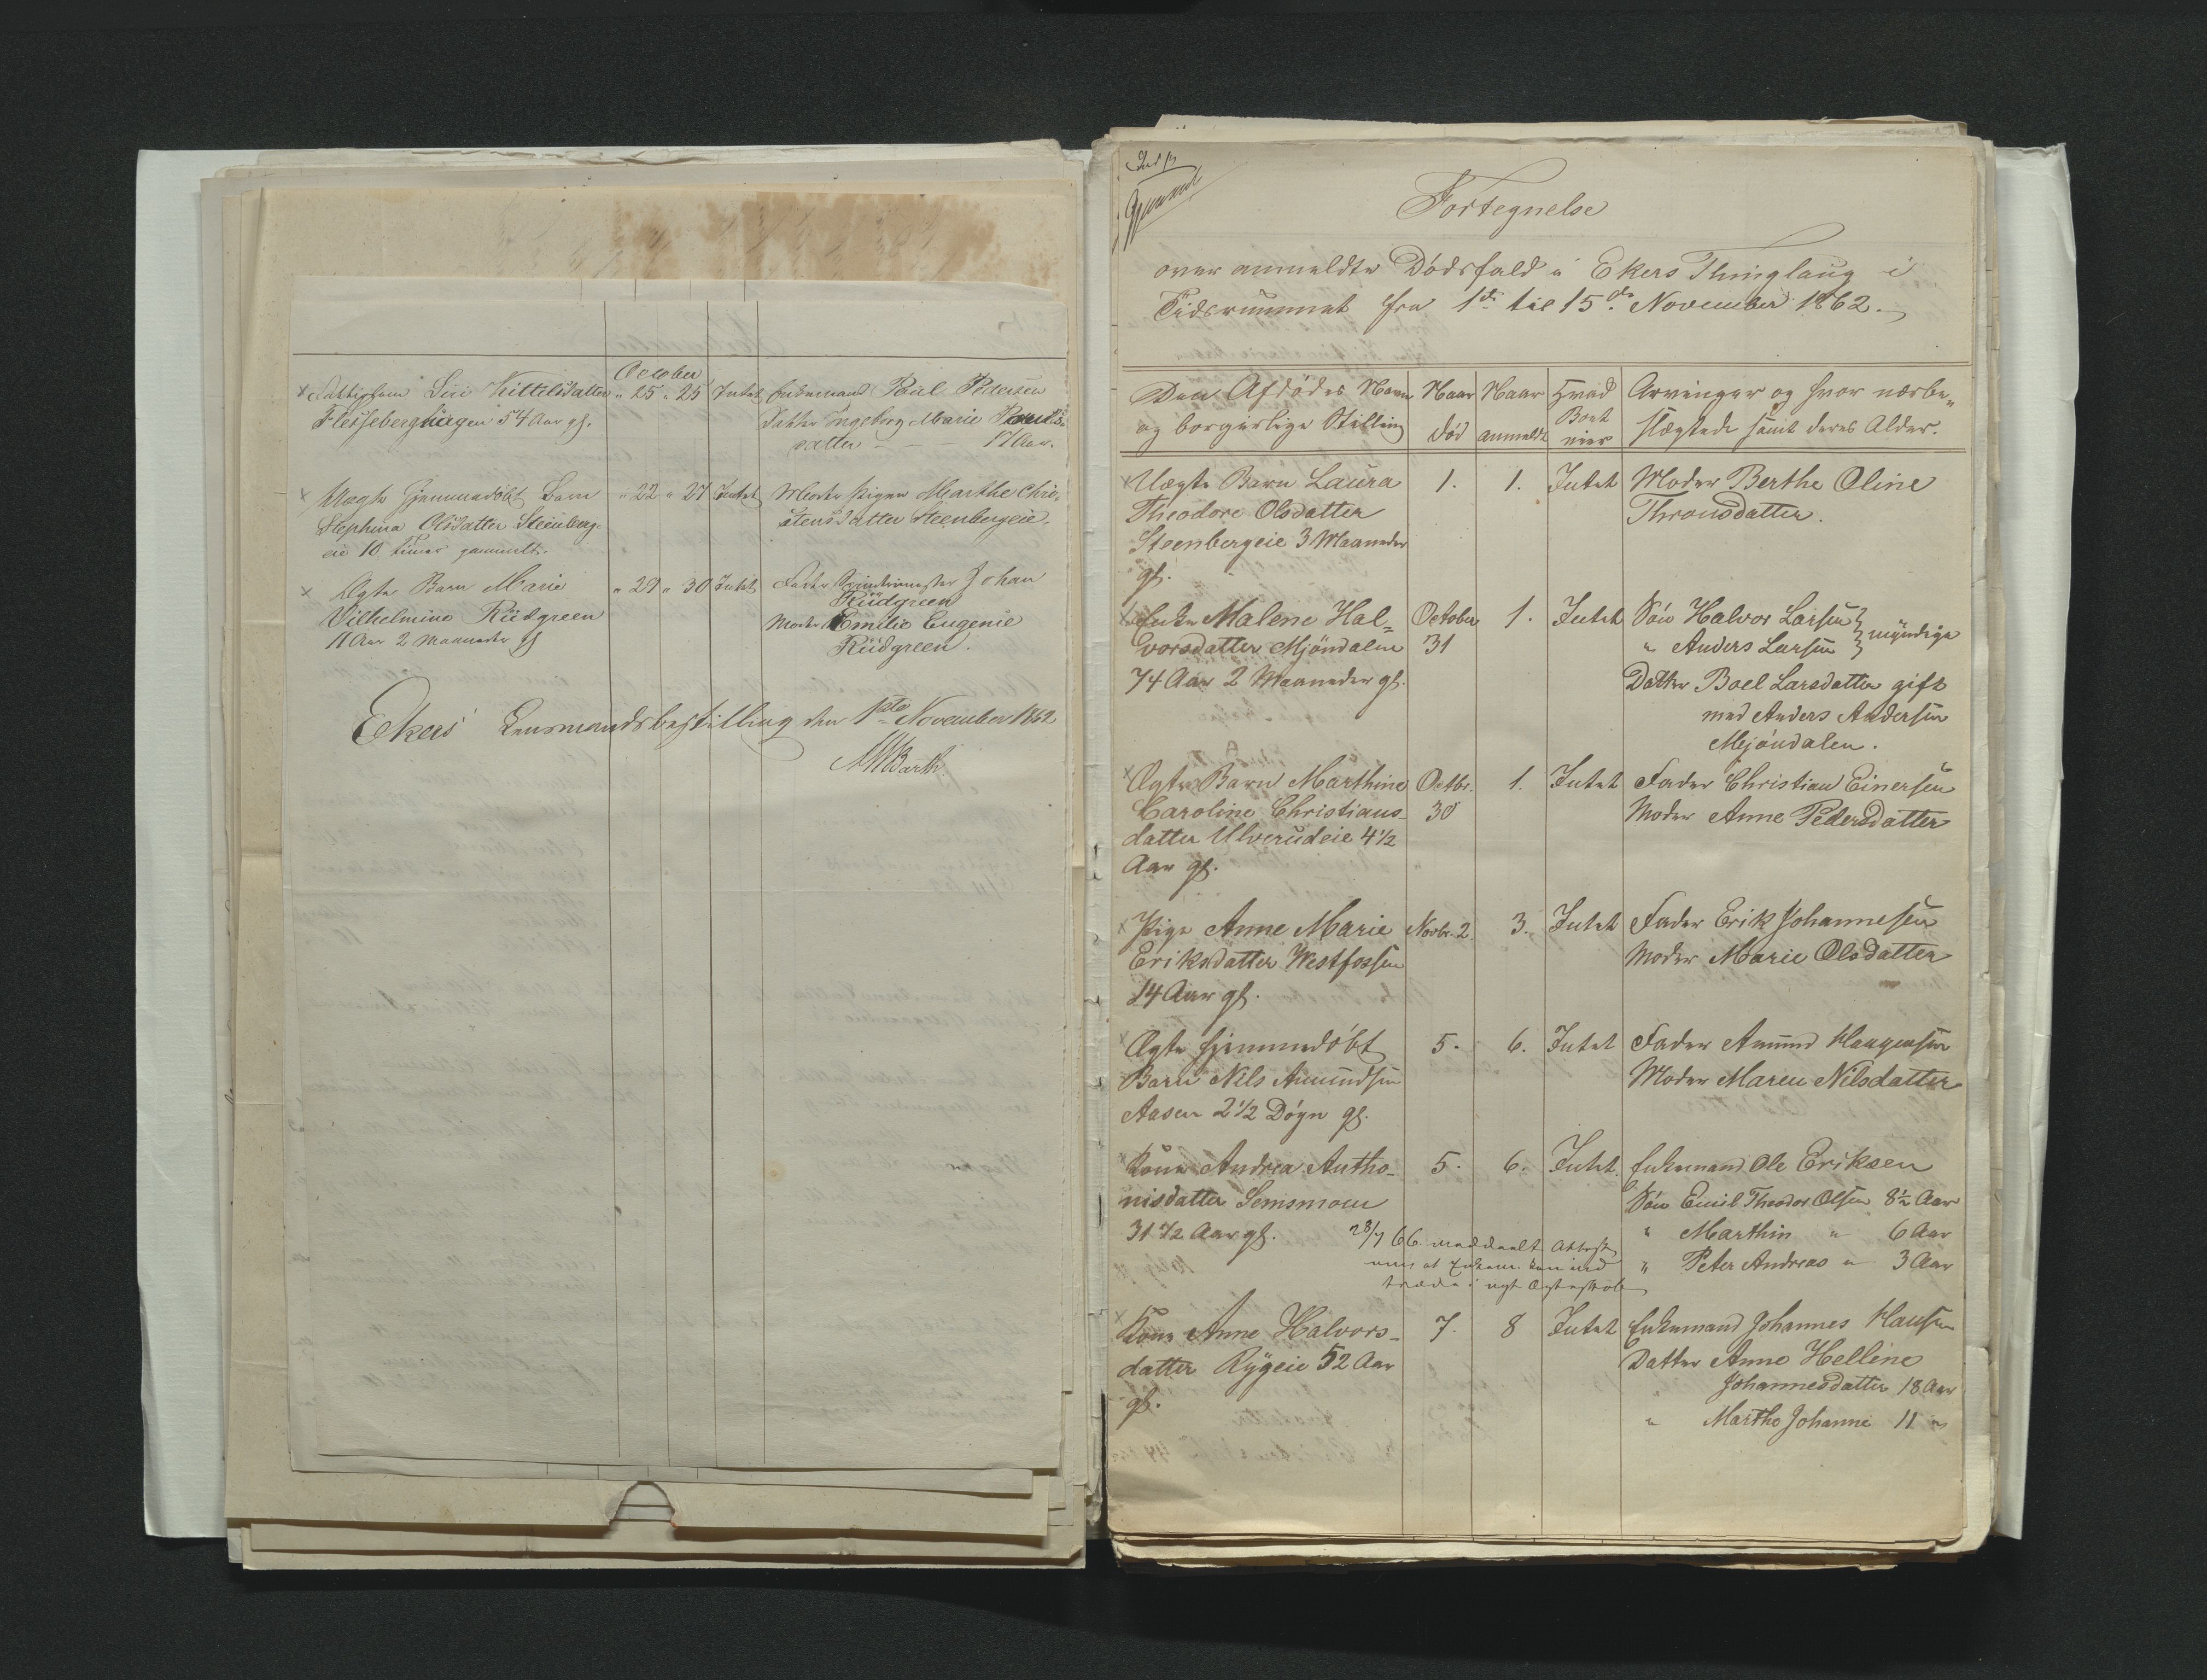 October
x Fattiglem Siri Kittilsdatter " 25 " 25 Intet Enkemand Poul Pedersen
Fleisseberghagen 54 Aar gl. Datter Ingeborg Marie Pouls-
datter — 17 Aar.
x Uægte hjemmedøbt Barn " 22 " 27 Intet Moder Pigen Marthe Chri-
Stephina Olsdatter Steenberg- stensdatter Steenbergeie.
eie 10 timer gammelt.
x Ægte Barn Marie " 29 " 30 Intet Fader Johan
Vilhelmine Rüdgreen Rüdgreen
11 Aar 2 Maaneder gl Moder Emilie Eugenie
Rüdgreen.
Ekers Lensmandsbestilling den 1ste November 1862
MWBarth.
Fortegnelse
over anmeldte Dødsfald i Ekers Thinglaug i
Tidsrummet fra 1ste til 15de November 1862.
Den Afdødes Navn Naar Naar Hvad Arvinger og hvor nærbe-
og borgerlige Stilling død anmeldt Boet eier slægtede samt deres Alder.
x Uægte Barn Laura 1. 1. Intet Moder Berthe Oline
Theodore Olsdatter Thronsdatter.
Steenbergeie 3 Maaneder
gl.
x Enke Malene Hal= October 1. Intet Søn Halvor Larsen } myndige
vorsdatter Mjøndalen 31 " Anders Larsen }
74 Aar 2 Maaneder gl. Datter Boel Larsdatter gift
med Anders Andersen
Mjøndalen.
x Ægte Barn Marthine Octbr. 1. Intet Fader Christian Einersen
Caroline Christians- 30 Moder Anne Pedersdatter
datter Ulverudeie 4 1/2
Aar gl.
x Pige Anne Marie Novbr. 2. 3. Intet Fader Erik Johannesen
Eriksdatter Westfossen Moder Marie Olsdatter
14 Aar gl.
x Ægte hjemmedøbt 5. 6. Intet Fader Amund Haagensen
Barn Nils Amundsen Moder Maren Nilsdatter
Aasen 2 1/2 Døgn gl.
x Kone Andrea Antho- 5. 6. Intet. Enkemand Ole Eriksen
nisdatter Semsmoen Søn Emil Theodor Olsen 8 1/2 Aar
31 1/2 Aar gl. 28/7 66 meddeelt Attest " Marthin " 6 Aar
om at Enkem. kan ind " Peter Andreas " 3 Aar
træde i nyt Ægteskab
x Kone Anne Halvors- 7. 8 Intet Enkemand Johannes Hansen
datter Rygeie 52 Aar Datter Anne Helline
gl. Johannesdatter 18 Aar
" Marthe Johanne 11 "